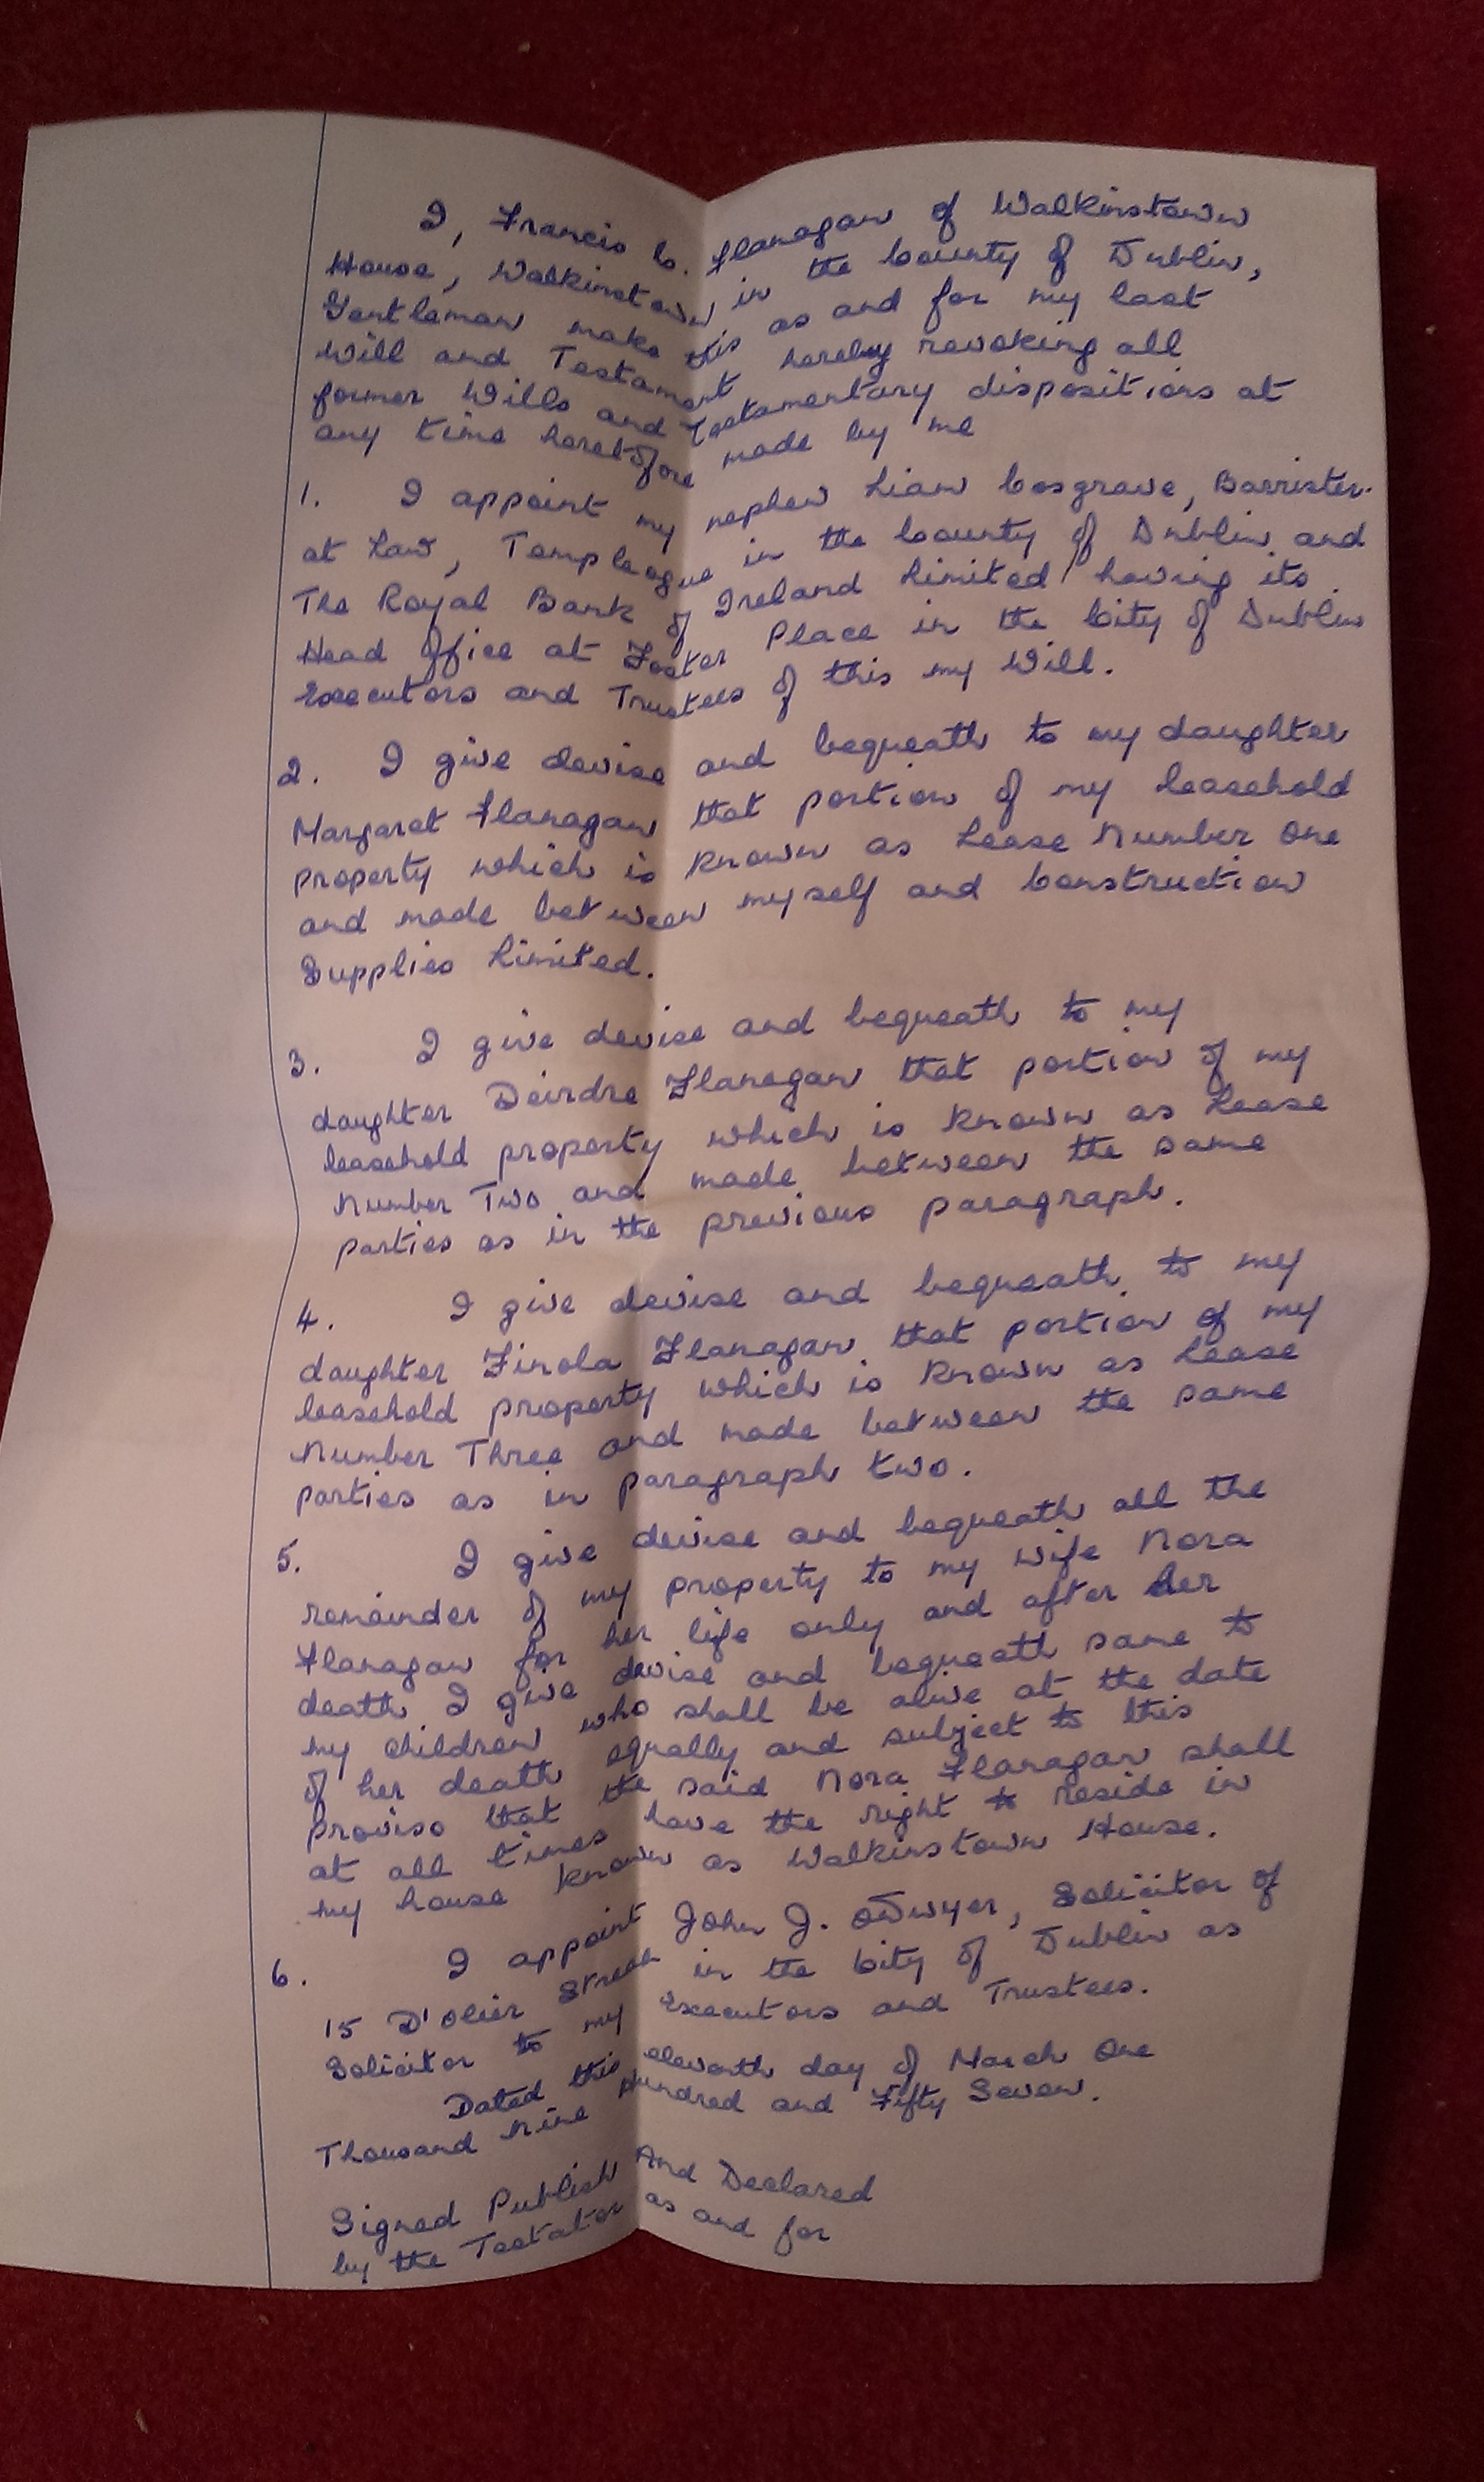 I, Francis C. Flanagan of Walkinstown
House, Walkinstown in the County of Dublin,
Gentleman make this as and for my last
Will and Testament hereby revoking all
former Wills and Testamentary dispositions at
any time heretofore made by me
1. I appoint my nephew Liam Cosgrave, Barrister-
at Law, Templeogue in the County of Dublin and
The Royal Bank of Ireland Limited having its
Head Office at Foster Place in the City of Dublin
Executors and Trustees of this my Will.
2. I give devise and bequeath to my daughter
Margaret Flanagan that portion of my leasehold
property which is known as Lease Number One
and made between myself and Construction
Supplies Limited.
3. I give devise and bequeath to my
daughter Deirdre Flanagan that portion of my
leasehold property which is known as Lease
Number Two and made between the same
parties as in the previous paragraph.
4. I give devise and bequeath to my
daughter Finola Flanagan that portion of my
leasehold property which is known as Lease
Number Three and made between the same
parties as in paragraph two.
5. I give devise and bequeath all the
remainder of my property to my wife Nora
Flanagan for her life only and after her
death I give devise and bequeath same to
my children who shall be alive at the date
of her death equally and subject to this
proviso that the said Nora Flanagan shall
at all times have the right to reside in
my house known as Walkinstown House.
6. I appoint John J. O'Dwyer, Solicitor of
15 D'olier Street in the City of Dublin as
Solicitor to my Executors and Trustees.
Dated this eleventh day of March One
Thousand Nine Hundred and Fifty Seven.
Signed Publish And Declared
by the Testator as and for